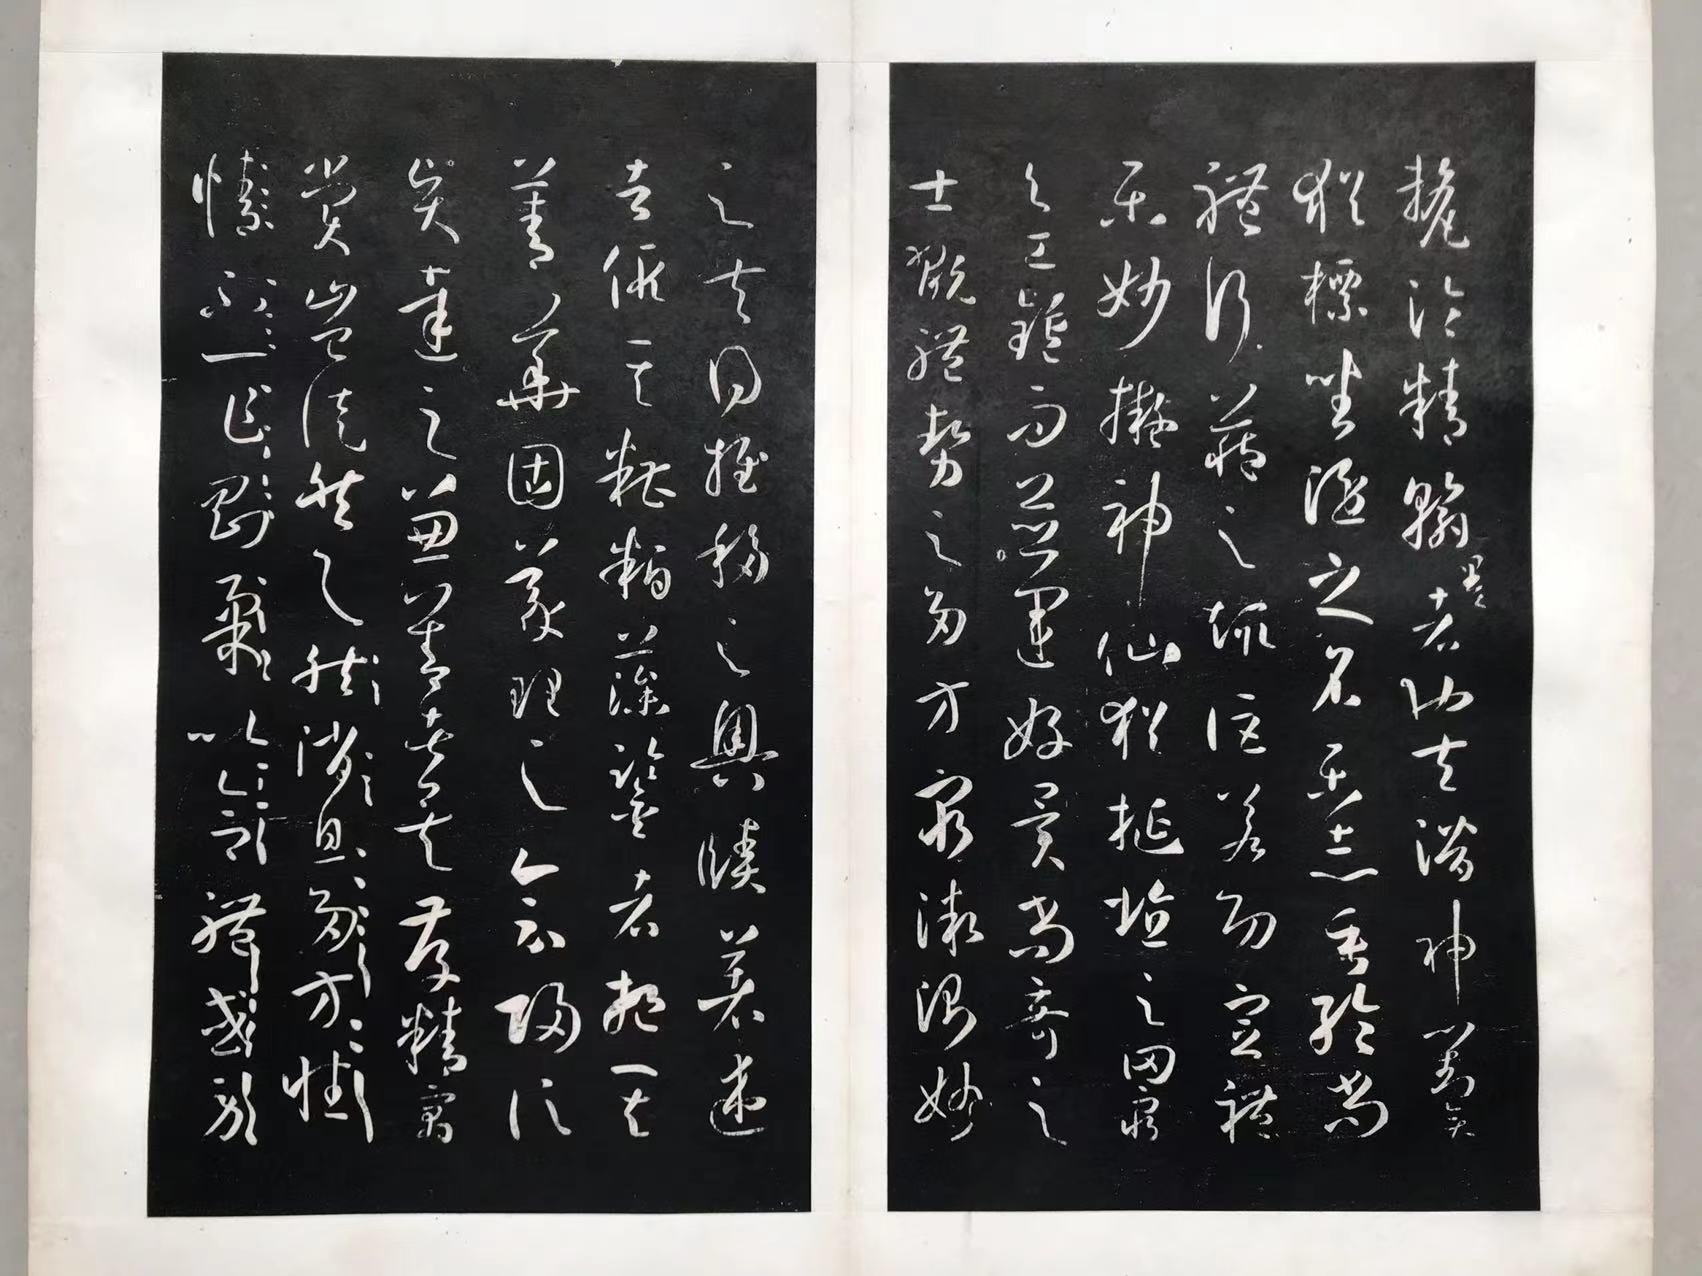 釐淪精翰墨者也夫潛神對奕
猶標坐隱之名樂志垂綸尚
體行藏之趣詎若功宣禮
樂妙擬神仙猶埏埴之罔窮
與工鑪而並運好異尚奇之
士翫體勢之多方窮微測妙
之夫得推移之奧賾著述
者假其糟粕藻鑒者挹其
菁華固義理之會歸信
賢達之兼善者矣存精寓
賞豈徒然與然消息多方性
情不一乍剛柔以合體忽勞